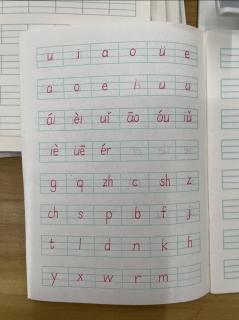 u i a o ü e
a o e i u ü
ái èi uǐ āo óu iǔ
iè üē ér
g q zh c sh z
ch s p b f j
t l d n k h
y x w r m